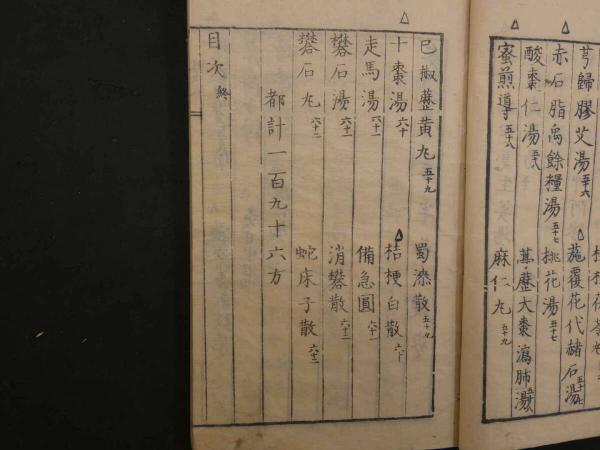 芎歸膠艾湯 五十六
赤石脂禹餘糧湯 五十七 旋覆花代赭石湯 五十七
酸棗仁湯 五十八 桃花湯 五十七
蜜煎導 五十八 葶藶大棗瀉肺湯
麻仁丸 五十九
已椒藶黄丸 五十九 蜀漆散 五十九
十棗湯 六十 桔梗白散 六十
走馬湯 六十一 備急圓 六十一
礬石湯 六十一 消礬散 六十二
礬石丸 六十二 蛇床子散 六十二
都計一百九十六方
目次 終